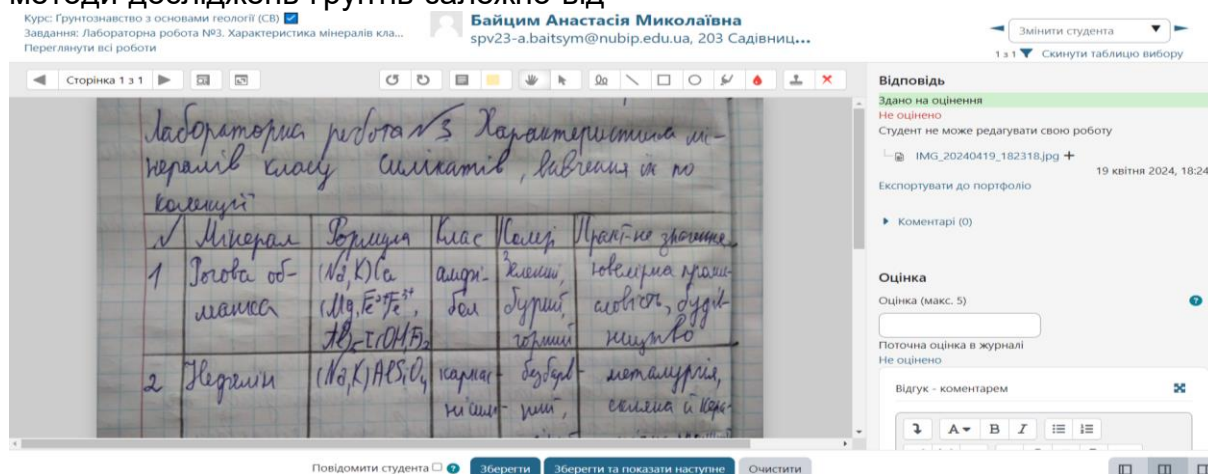 методи досліджень ґрунтів залежно від
Курс: Ґрунтознавство з основами геології (СВ)
Завдання: Лабораторна робота №3. Характеристика мінералів кла...
Переглянути всі роботи
Байцим Анастасія Миколаївна
spv23-a.baitsym@nubip.edu.ua, 203 Садівниц...
Змінити студента
1 з 1 Скинути таблицю вибору
Сторінка 1 з 1
Лабораторна робота №3 Характеристика мі-
нералів класу силікатів, вивчення їх по
колекції
N Мінерал Формула Клас Колір Практ-не значення
1 Рогова об- (Na,K)Ca амфі- Зелений, Ювелірна проми-
манка (Mg,Fe²⁺Fe³⁺, бол бурий, словість, будів-
чорний ництво
2 Нефелін (Na,K)AlSiO₄ каркас- безбарв- металургія,
ний, скляна й кера-
Відповідь
Здано на оцінення
Не оцінено
Студент не може редагувати свою роботу
IMG_20240419_182318.jpg
19 квітня 2024, 18:24
Експортувати до портфоліо
Коментарі (0)
Оцінка
Оцінка (макс. 5)
Поточна оцінка в журналі
Не оцінено
Відгук - коментарем
A B I
Повідомити студента Зберегти Зберегти та показати наступне Очистити